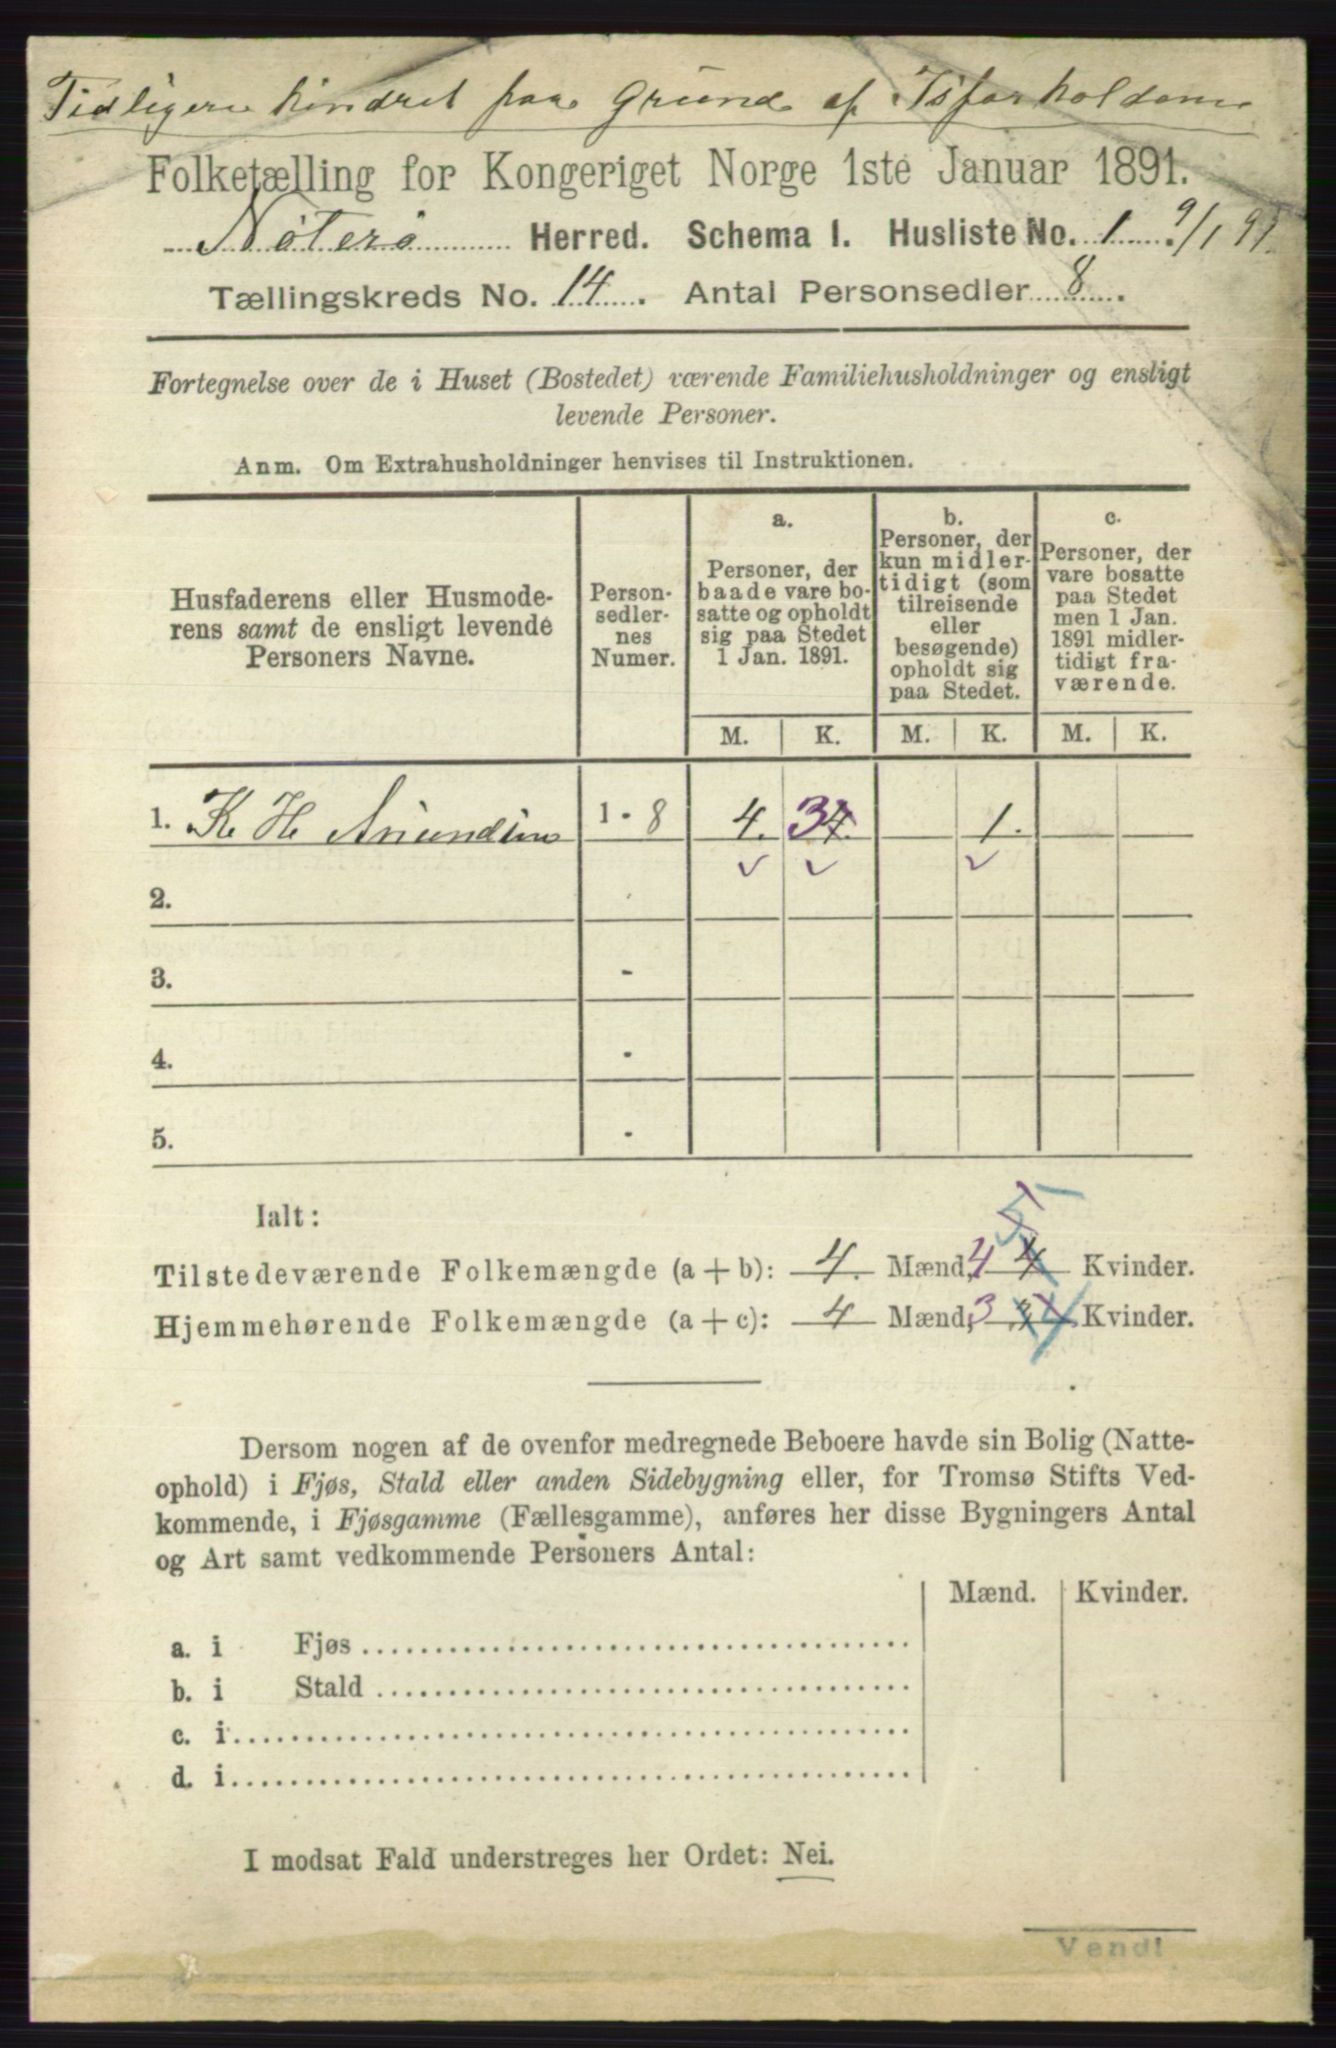 Tidligere hindret paa Grund af Isforholdene
Folketælling for Kongeriget Norge 1ste Januar 1891.
Nøterø Herred. Schema 1. Husliste No. 1. 9/1 91.
Tællingskreds No. 14. Antal Personsedler 8.
Fortegnelse over de i Huset (Bostedet) værende Familiehusholdninger og ensligt
levende Personer.
Anm. Om Extrahusholdninger henvises til Instruktionen.
Husfaderens eller Husmode-
rens samt de ensligt levende
Personers Navne.
Person-
sedler-
nes
Numer.
a.
Personer, der
baade vare bo-
satte og opholdt
sig paa Stedet
1 Jan. 1891.
b.
Personer, der
kun midler-
tidigt (som
tilreisende
eller
besøgende)
opholdt sig
paa Stedet.
c.
Personer, der
vare bosatte
paa Stedet
men 1 Jan.
1891 midler-
tidigt fra-
værende.
M. K. M. K. M. K.
1. K. H. 1 - 8 4. 34. 1.
2.
3. -
4. -
5. -
Ialt:
5
Tilstedeværende Folkemængde (a + b): 4. Mænd, 4 4 Kvinder.
Hjemmehørende Folkemængde (a + c): 4 Mænd, 3 4 Kvinder.
Dersom nogen af de ovenfor medregnede Beboere havde sin Bolig (Natte-
ophold) i Fjøs, Stald eller anden Sidebygning eller, for Tromsø Stifts Ved-
kommende, i Fjøsgamme (Fællesgamme), anføres her disse Bygningers Antal
og Art samt vedkommende Personers Antal:
Mænd. Kvinder.
a. i Fjøs
b. i Stald
c. i
d. i
I modsat Fald understreges her Ordet: Nei.
Vend!